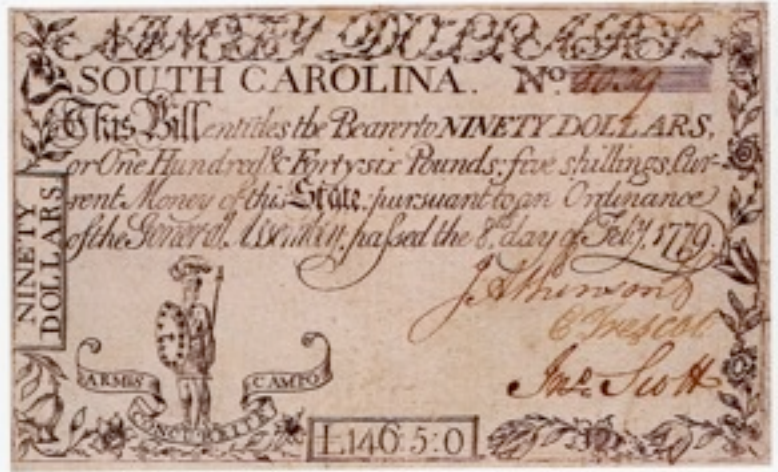 NINETY DOLLARS
SOUTH CAROLINA. No.
This Bill entitles the Bearer to NINETY DOLLARS,
or One Hundred & Forty six Pounds, five shillings, Cur-
rent Money of this State, pursuant to an Ordinance
of the General Assembly, passed the 8th. day of Feby. 1779.
NINETY
DOLLARS
J Atkinson
Jno. Scott
ARMIS CAMPO
£146:5:0